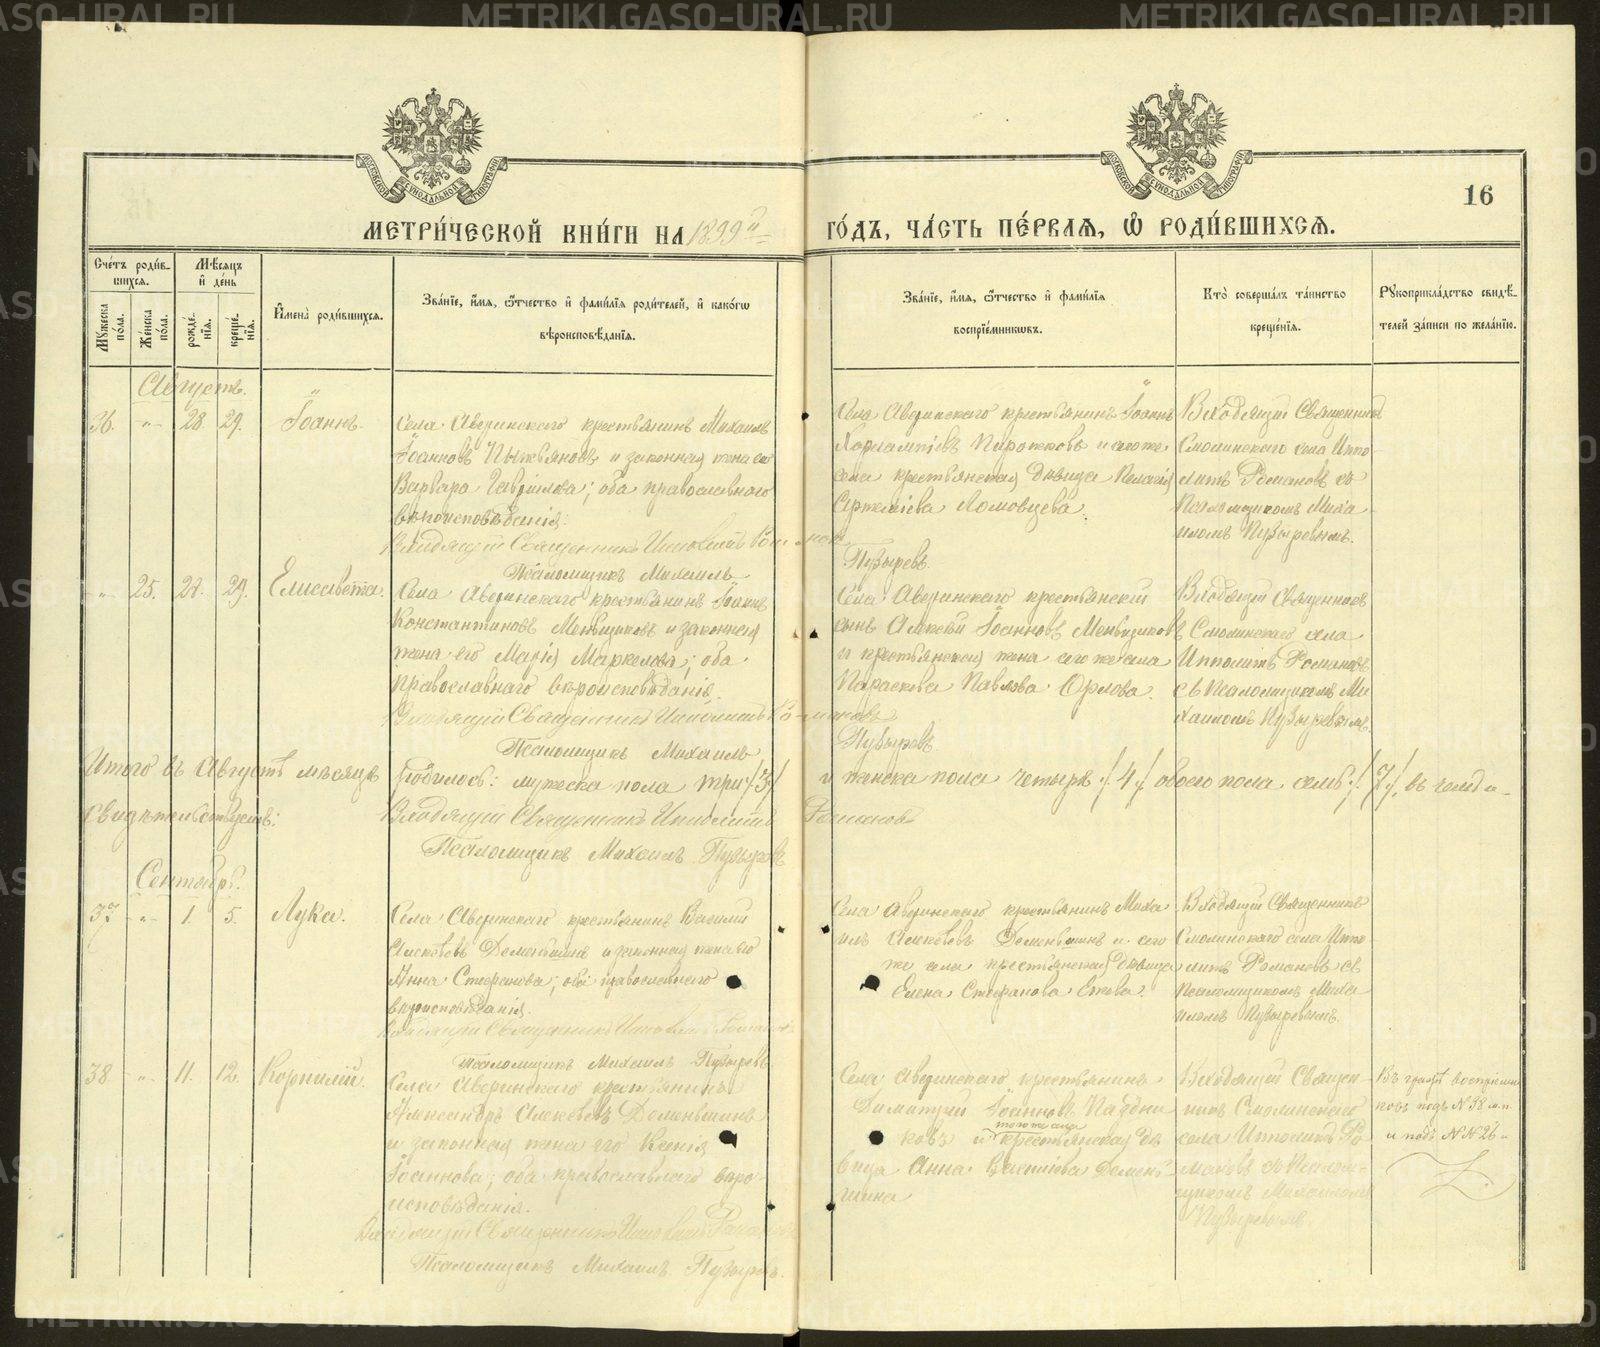 МЕТРИ́ЧЕСКОЙ КНИ́ГИ НА 1899й ГО́ДЪ, ЧА́СТЬ ПЕ́РВАѦ, Ѽ РОДИ́ВШИХСѦ.
16
Сче́тъ роди́вшихсѧ.
Мꙋ́жеска по́ла.
Же́нска по́ла.
Мѣ́сѧцъ и҆ де́нь
рожде́нїѧ.
креще́нїѧ.
И҆мена̀ роди́вшихсѧ.
Зва́нїе, и҆́мѧ, ѻ҆́тчество и҆ фами́лїѧ роди́телей, и҆ како́гѡ
вѣроисповѣ́данїѧ.
Зва́нїе, и҆́мѧ, ѻ҆́тчество и҆ фами́лїѧ
воспрїе́мникѡвъ.
Кто̀ соверша́лъ та́инство
креще́нїѧ.
Рꙋкоприкла́дство свидѣ́телей за́писи по жела́нїю.
Августъ.
36. -"- 28. 29. Іоаннъ.
Села Аверинскаго крестьянинъ Михаилъ
Іоанновъ и законная жена его
Варвара Гаврилова; оба православнаго
вѣроисповѣданія.
Входящій Священникъ Ипполитъ Романовъ
Псаломщикъ Михаилъ Пузыревъ
Села Аверинскаго крестьянинъ Іоаннъ
Харлампіевъ Пирожковъ и того же
села крестьянская дѣвица Пелагія
Артеміева Ломовцева.
Входящій Священникъ
Смолинскаго села Иппо-
литъ Романовъ съ
Псаломщикомъ Миха-
иломъ Пузыревымъ.
-"- 25. 27. 29. Елисавета.
Села Аверинскаго крестьянинъ Іоаннъ
Константиновъ Меньщиковъ и законная
жена его Марія Маркелова; оба
православнаго вѣроисповѣданія.
Входящій Священникъ Ипполитъ Романовъ
Псаломщикъ Михаилъ Пузыревъ
Села Аверинскаго крестьянскій
сынъ Алексѣй Іоанновъ Меньщиковъ
и крестьянская жена того же села
Параскева Павлова Орлова.
Входящій Священникъ
Смолинскаго села
Ипполитъ Романовъ
съ Псаломщикомъ Ми-
хаиломъ Пузыревымъ.
Итого въ Августѣ мѣсяцѣ родилось: мужеска пола три /3/ и женска пола четыре /4/ обоего пола семь; /7/, въ чемъ и
свидѣтельствуемъ:
Входящій Священникъ Ипполитъ Романовъ
Псаломщикъ Михаилъ Пузыревъ
Сентябрь.
37 -"- 1. 5. Лука.
Села Аверинскаго крестьянинъ Василій
Алексѣевъ Деменьшинъ и законная жена его
Анна Стефанова; оба православнаго
вѣроисповѣданія.
Входящій Священникъ Ипполитъ Романовъ
Псаломщикъ Михаилъ Пузыревъ
Села Аверинскаго крестьянинъ Миха
илъ Алексѣевъ Деменьшинъ и того
же села крестьянская дѣвица
Елена Стефанова
Входящій Священникъ
Смолинскаго села Иппо-
литъ Романовъ съ
Псаломщикомъ Миха
иломъ Пузыревымъ.
38 -"- 11. 12. Корнилій.
Села Аверинскаго крестьянинъ
Александръ Алексѣевъ Деменьшинъ
и законная жена его Ксенія
Іоаннова; оба православнаго вѣро-
исповѣданія.
Входящій Священникъ Ипполитъ Романовъ
Псаломщикъ Михаилъ Пузыревъ.
Села Аверинскаго крестьянинъ
Димитрій Іоанновъ
и того же села крестьянская дѣ-
вица Анна Василіева Демень-
шина
Входящій Священ-
никъ Смолинскаго
села Ипполитъ Ро-
мановъ съ Псалом-
щикомъ Михаиломъ
Пузыревымъ.
Въ графѣ воспріемни
ковъ подъ № 38 м.п.